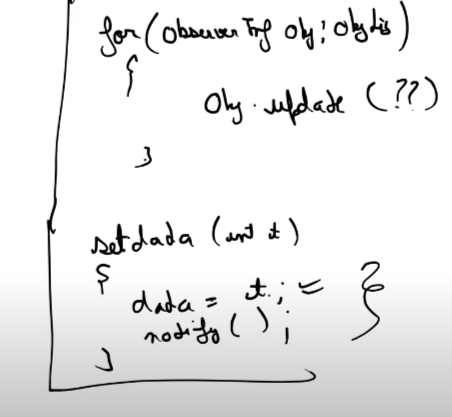 for(ObserverIntf obj : objlis)
{
obj.update (??)
}
setdada (int t)
{
data = t ;
notify ( ) ;
}